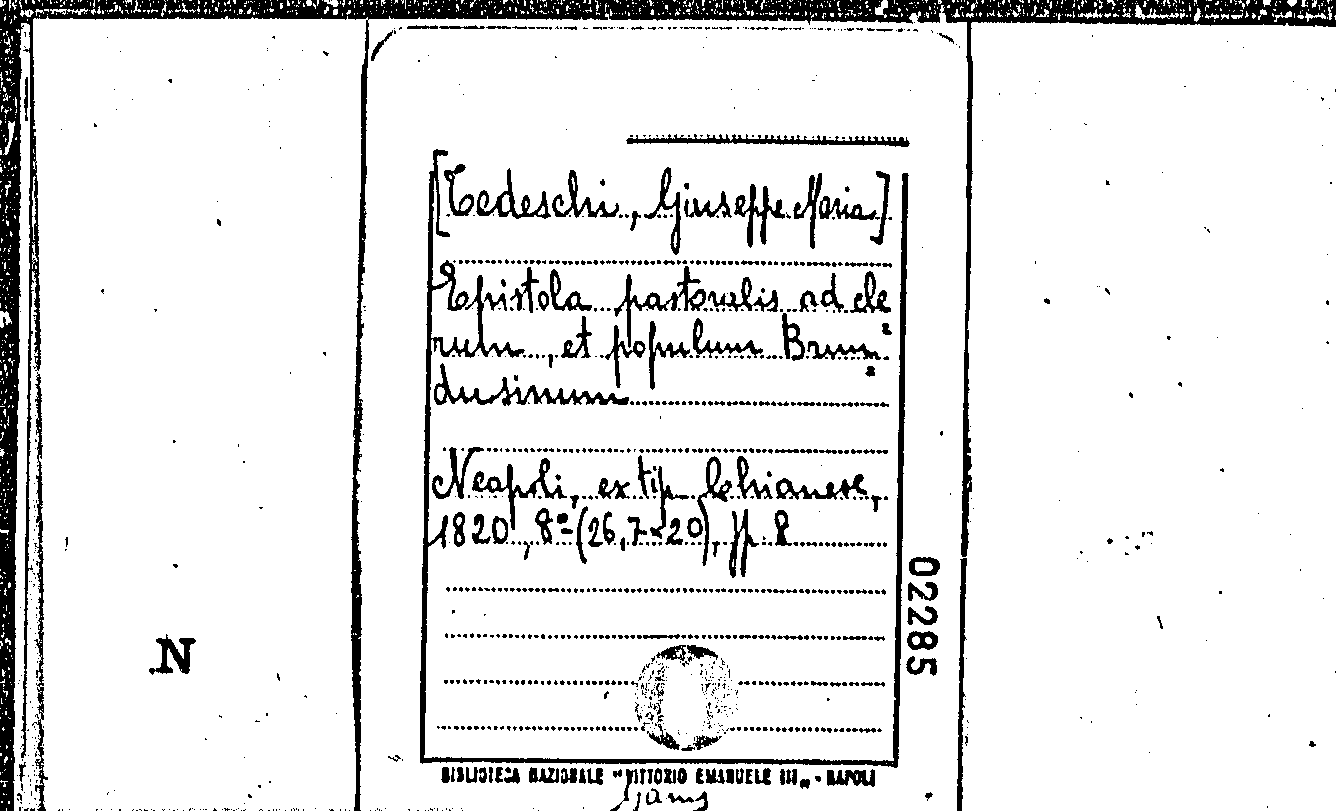 [Tedeschi, Giuseppe Maria]
Epistola pastoralis ad cle
rum, et populum Brun=
dusinum
Neapoli, ex tip. Chianese,
1820, 8º (26,7x20), pp. 8
02285
N
BIBLIOTECA NAZIONALE "VITTORIO EMANUELE III„ - NAPOLI